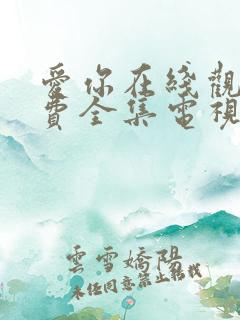 愛你在綫觀
費全集電視
雲雪嬌陽
未經同意禁止轉載